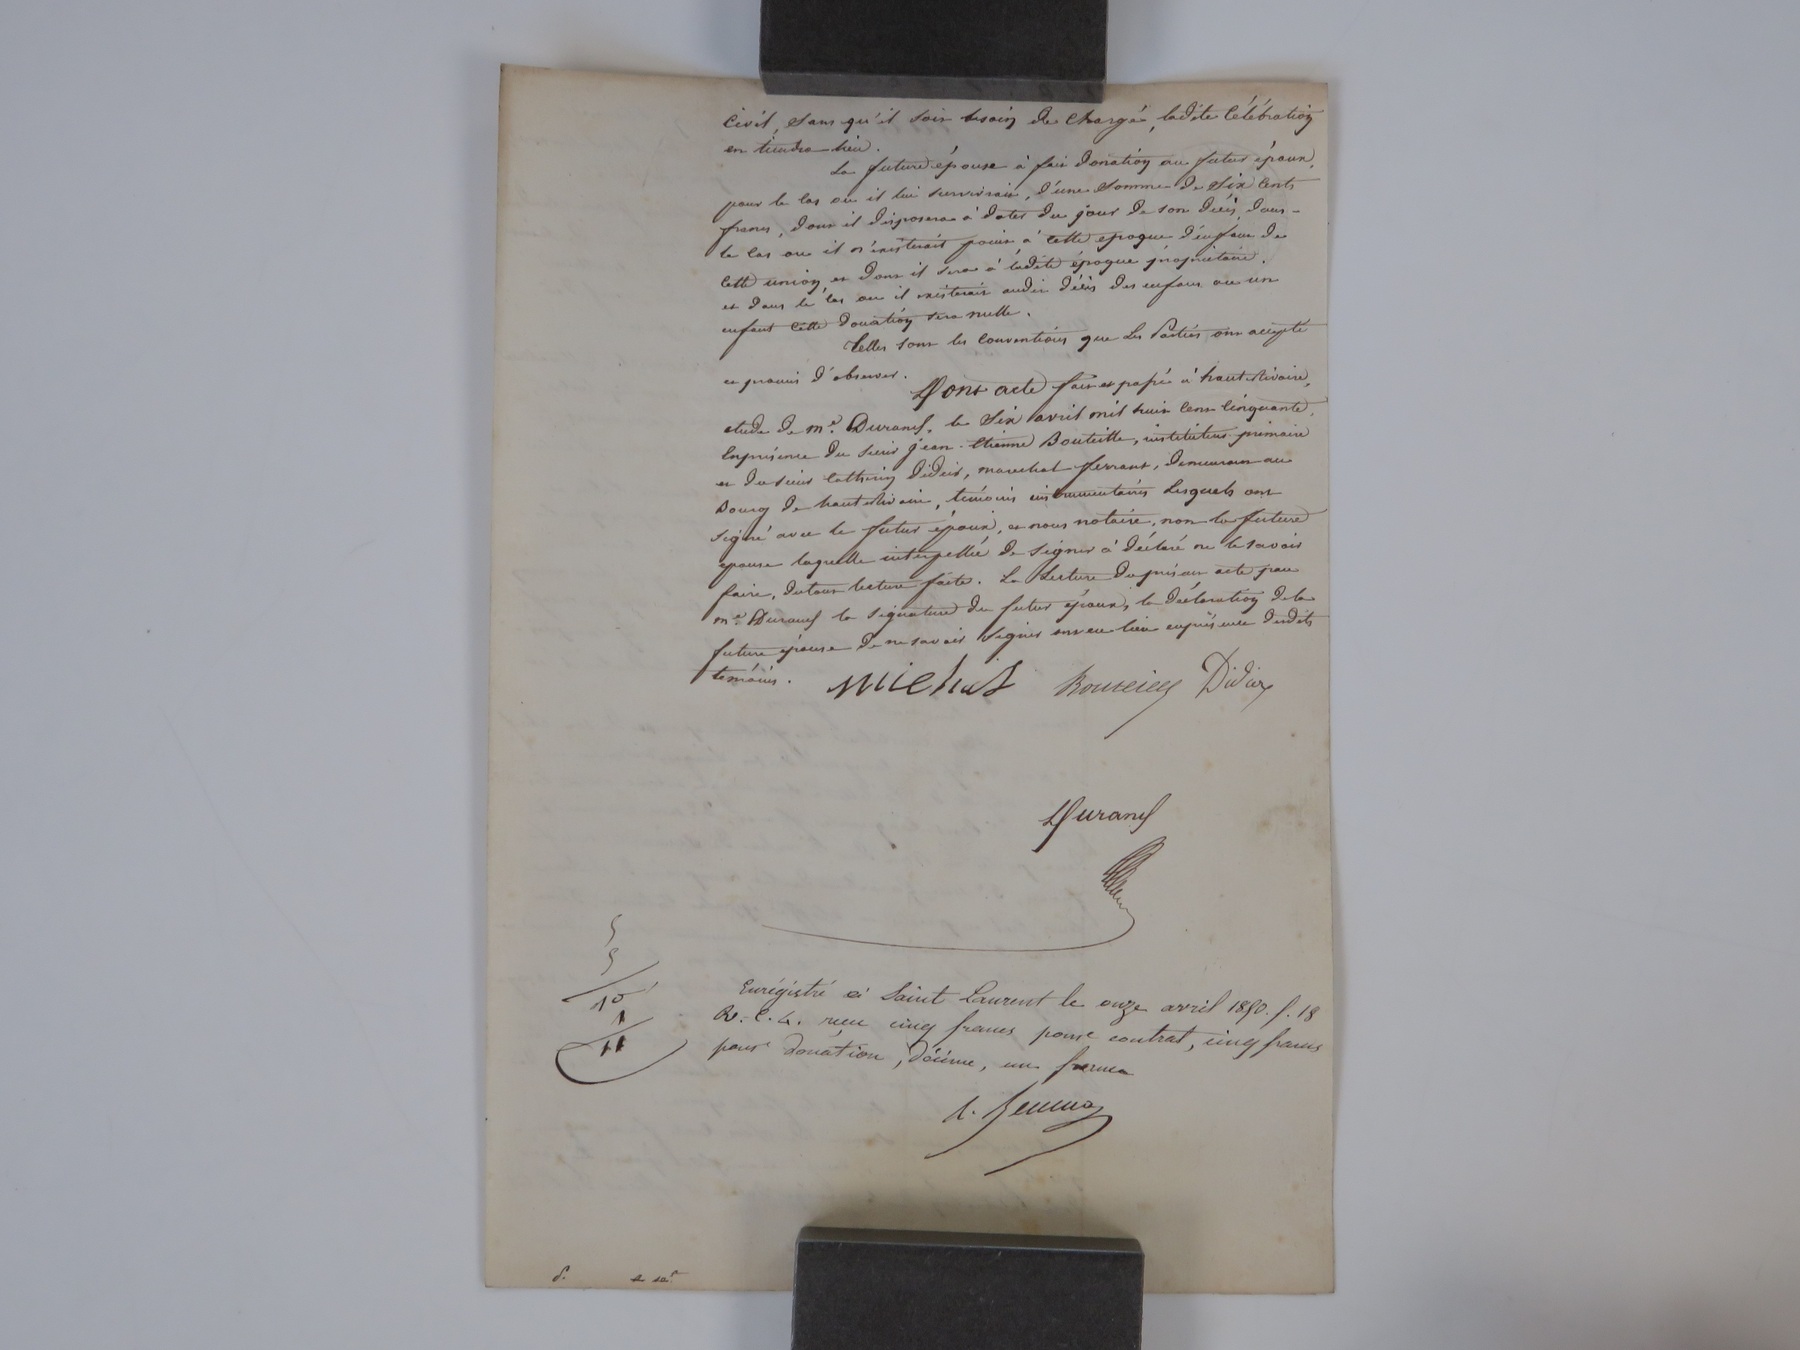 civil, sans qu'il soit besoin de charge, ladite célébration
en tiendra lieu.
La future épouse à fait donation au futur époux,
pour le cas ou il lui survivrait, d'une somme de six cents
francs, dont il disposera à dater du jour de son décès, dans
le cas ou il n'existerait point à cette epoque d'enfant de
cette union et dont il sera à ladite époque propriétaire.
et dans le cas ou il existerait audit décès des enfans ou un
enfant cette donation sera nulle.
Telles sont les conventions que les Parties ont accepté
et promis d'observer.
Dont acte fait et passé à hauterivoire,
etude de me. Durand, le six avril mil huit cent cinquante,
enprésence du sieur jean-Etienne Bouteille, instituteur primaire
et du sieur Cathérin Didier, marechal ferrant, demeurant au
Bourg de hauterivoire, témoins instrumentaires lesquels ont
signé avec le futur époux, et nous notaire, non la future
epouse laquelle interpellée de signer à déclaré ne le savoir
faire, dutout lecture faite. La lecture du présent acte par
me. Durand la signature du futur époux, la déclaration de la
future épouse de ne savoir signer ont eu lieu enprésence desdits
témoins.
Michat Bouteille Didier
Durand
5
5
10
1
11
Enrégistré à Saint Laurent le onze avril 1850. f. 18
R. C. 4. reçu cinq francs pour contrat, cinq francs
pour donation, décime, un franc